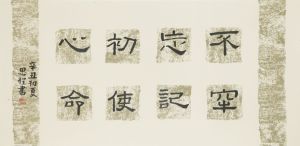 不忘初心
牢記使命
辛丑初夏
思 書